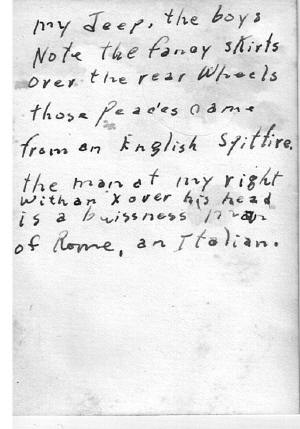 my Jeep, the boys
Note the fancy skirts
over the rear wheels
those Peades came
from an English Spitfire.
the man at my right
with an X over his head
is a buissness man
of Rome, an Italian.